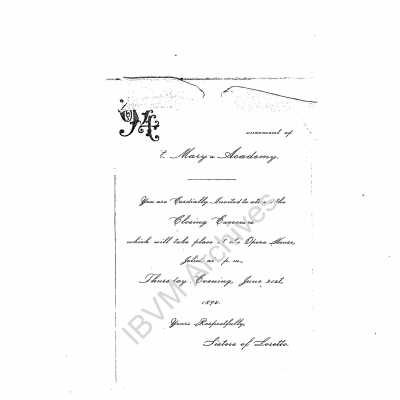 '94
...ncement of
t. Mary's Academy.
You are Cordially Invited to att the
Closing Exercises
which will take place at Opera House,
Joliet, at p. m.
Thursday Evening, June 21st,
1894.
Yours Respectfully,
Sisters of Loretto.
IBVM Archives